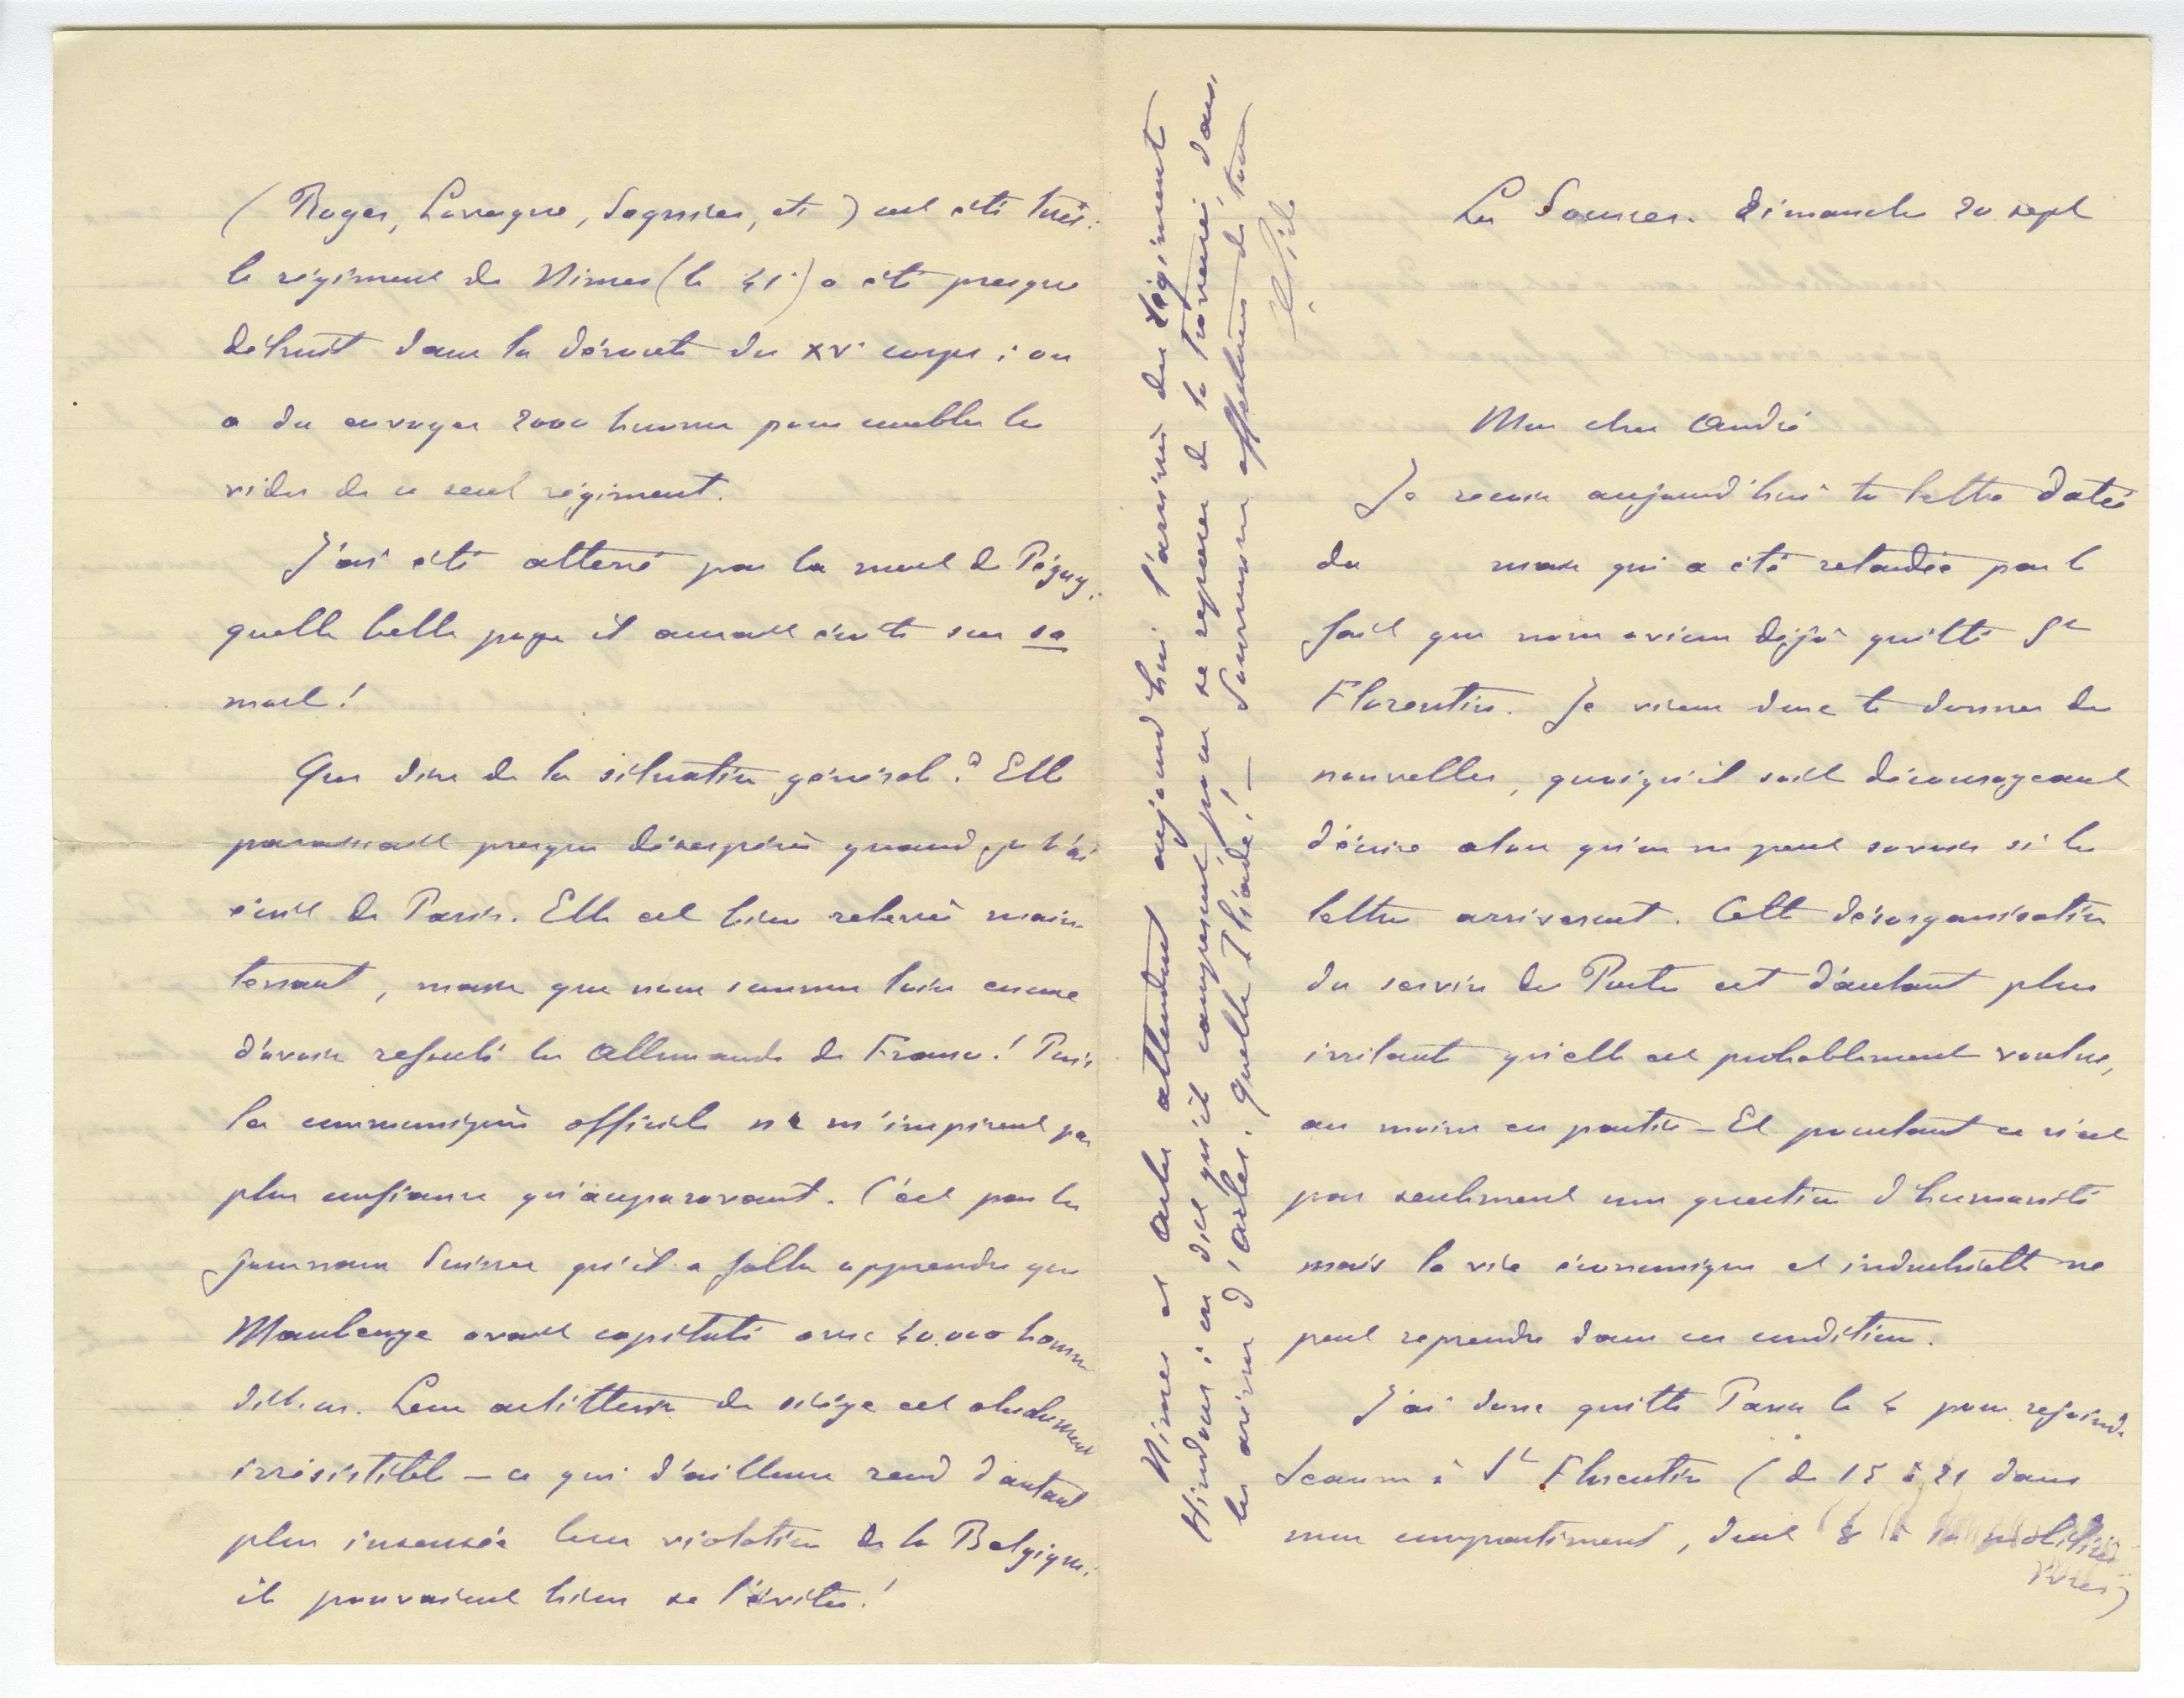 (Roger, Lavergne, Sagnier, etc) ont été tués.
le régiment de Nimes (le 41e) a été presque
détruit dans la déroute du XVe corps ; on
a du envoyer 2000 hommes pour combler les
vides de ce seul régiment.
J'ai été atterré par la mort de Péguy.
quelle belle page il aurait écrite sur sa
mort !
Que dire de la situation générale ? Elle
paraissait presque désespérée quand je t'ai
écrit de Paris. Elle est bien relevée main-
tenant, mais que nous sommes loin encore
d'avoir refoulé les Allemands de France ! Puis
les communiqués officiels ne m'inspirent pas
plus confiance qu'auparavant. C'est par les
journaux Suisses qu'il a fallu apprendre que
Maubeuge avait capitulé avec 40.000 hommes
dedans. Leur artillerie de siège est absolument
irrésistible – ce qui d'ailleurs rend d'autant
plus insensée leur violation de la Belgique :
ils pouvaient bien se l'éviter !
Nimes et Arles attendent aujourd'hui l'arrivée des régiments
Hindous ; on dit qu'ils campent pour se reposer de la traversée, dans
les arènes d'Arles. Quelle Iliade ! – Sommes affectueusement tous
Ch Gide
Les Sources. Dimanche 20 sept
Mon cher André
Je reçois aujourd'hui ta lettre datée
du mais qui a été retardée par le
fait que nous avions déjà quitté St
Florentin. Je viens donc te donner des
nouvelles, quoiqu'il soit décourageant
d'écrire alors qu'on ne peut savoir si les
lettres arriveront. Cette désorganisation
du service des Postes est d'autant plus
irritante qu'elle est probablement voulue,
au moins en partie – Et pourtant ce n'est
pas seulement une question d'humanité
mais la vie économique et industrielle ne
peut reprendre dans ces conditions.
J'ai donc quitté Paris le 4 pour rejoindre
Jeanne à St Florentin (de 15 à 21 dans
mon compartiment, dont 8 à 10 mobilisés
ivres)